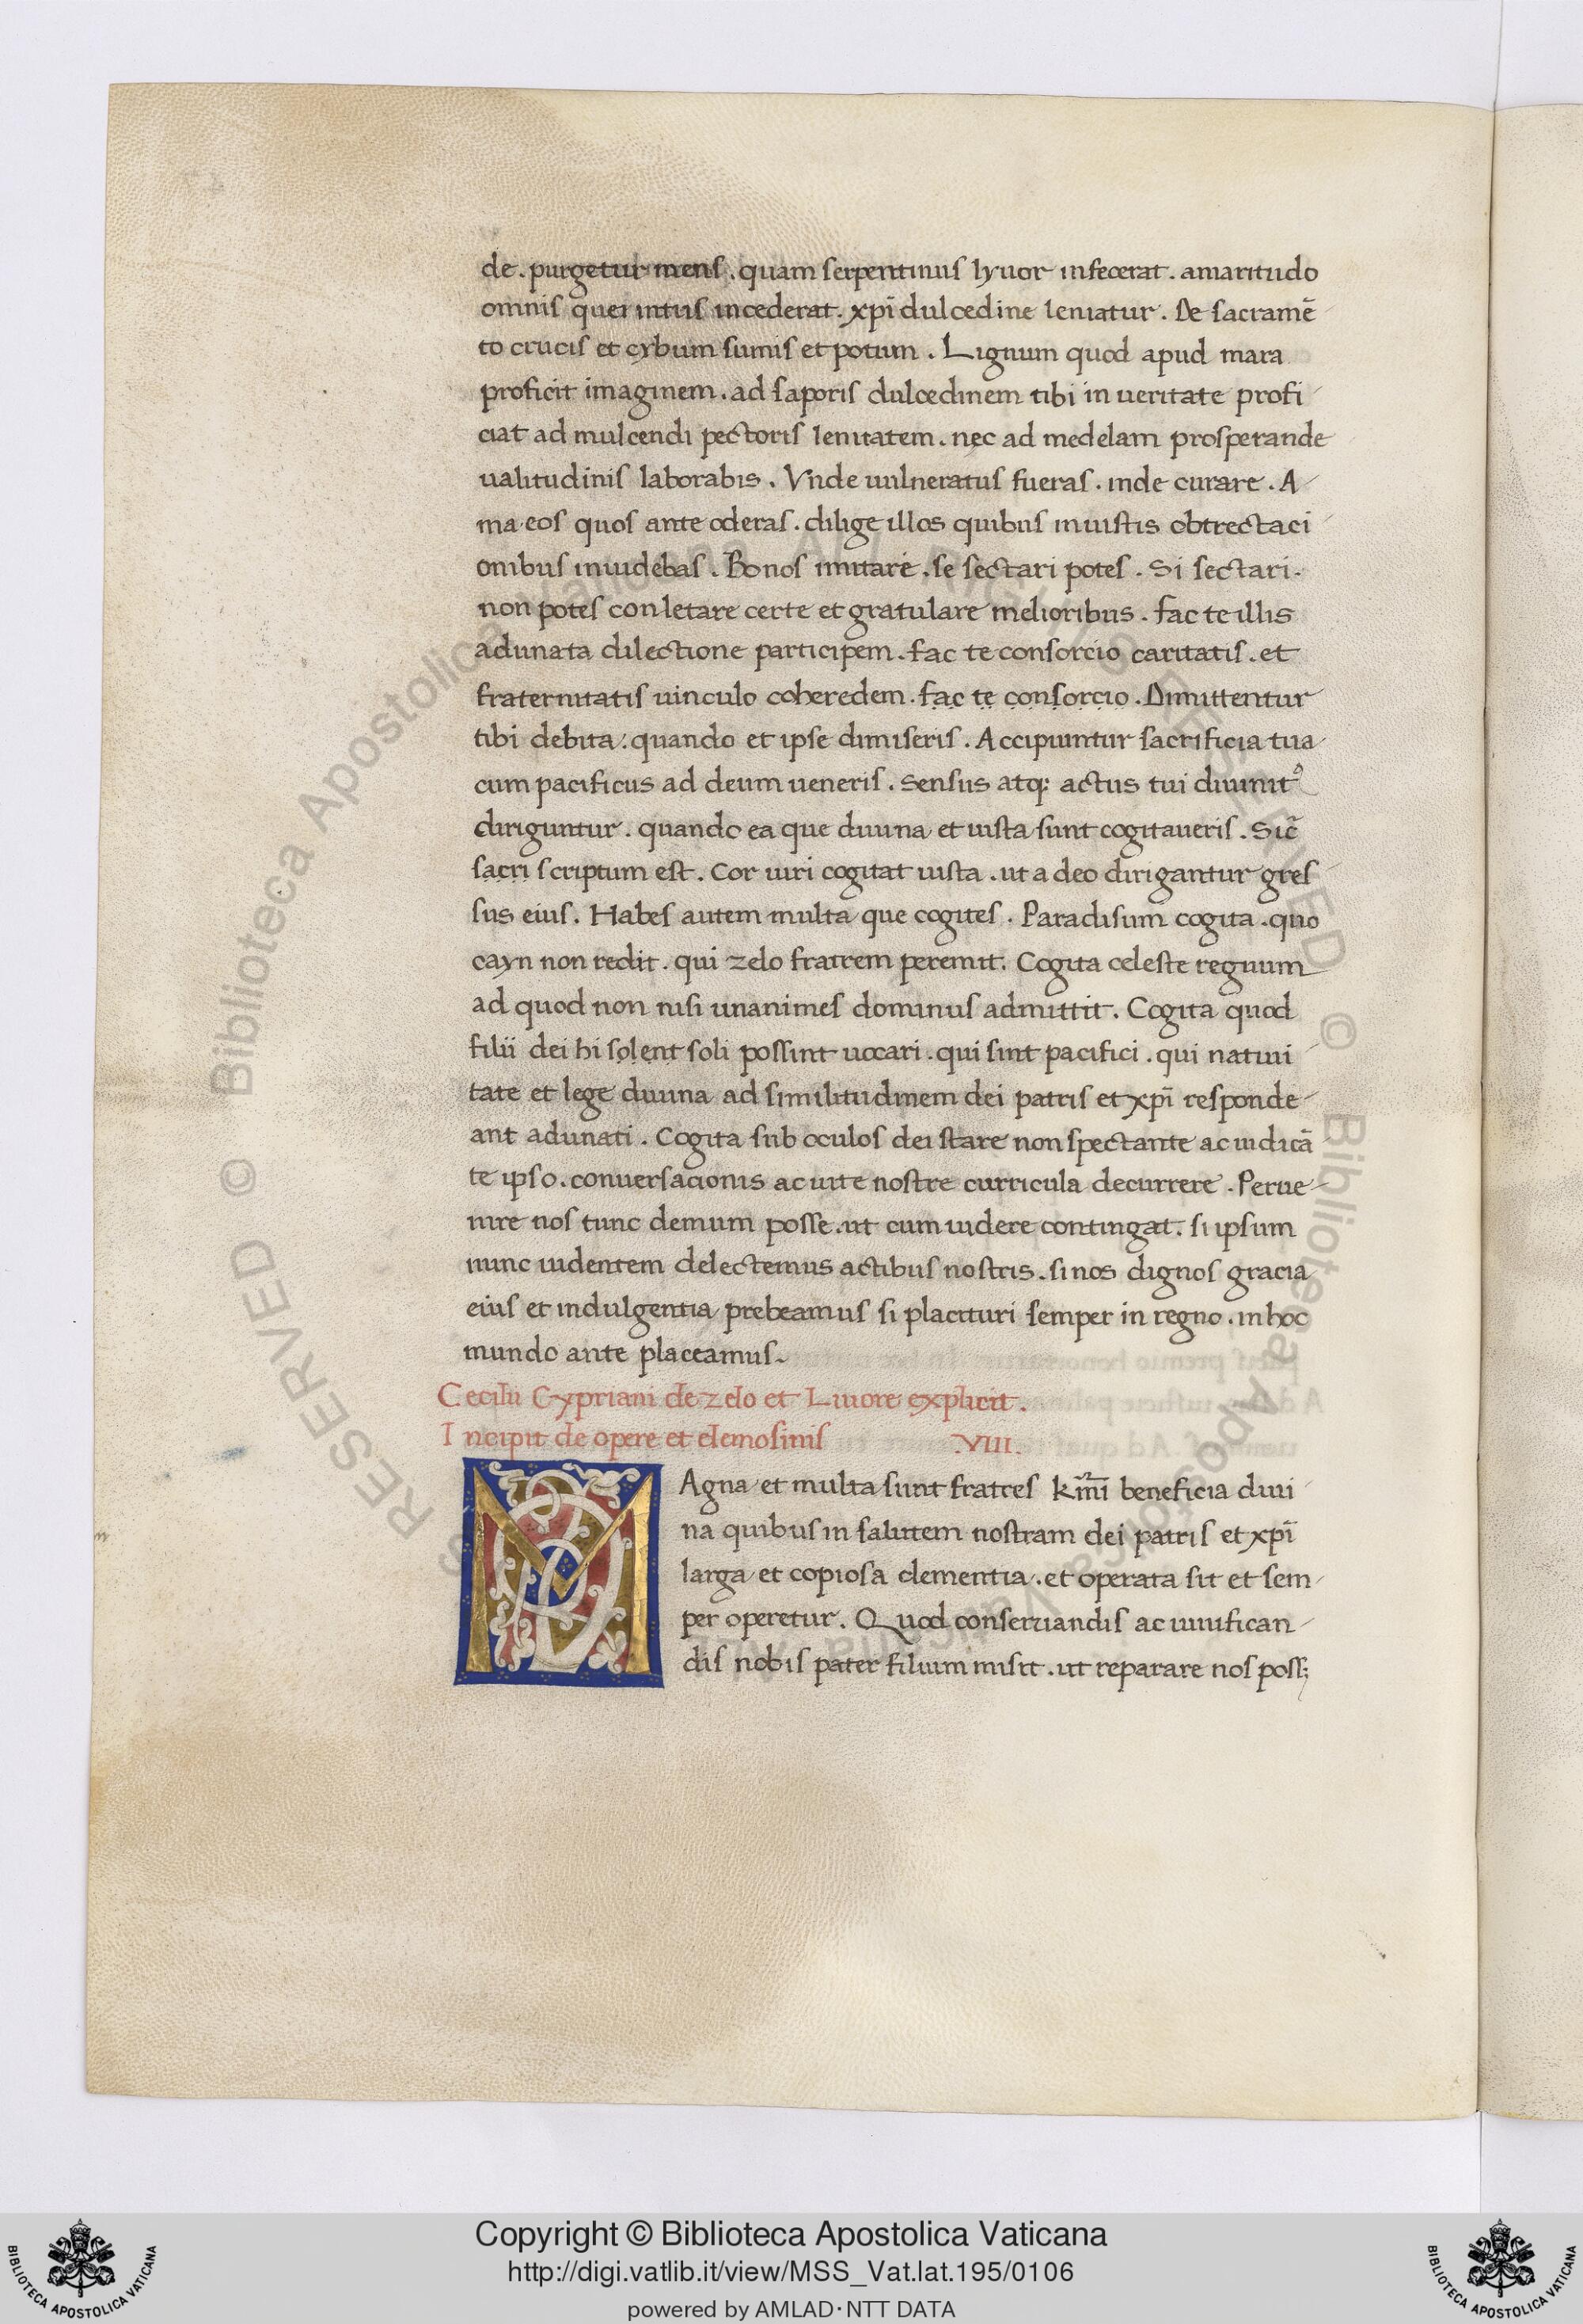 de . purgetur mens . quam serpentinus lyuor infecerat . amaritudo
omnis que intus incederat . xpī dulcedine leniatur . De sacramē
to crucis et cybum sumis et potum . Lignum quod apud mara
proficit imaginem . ad saporis dulcedinem tibi in ueritate profi
ciat ad mulcendi pectoris lenitatem . nec ad medelam prosperande
ualitudinis laborabis . Vnde uulneratus fueras . inde curare . A
ma eos quos ante oderas . dilige illos quibus iniustis obtrectaci
onibus inuidebas . Bonos imitare . se sectari potes . Si sectari .
non potes conletare certe et gratulare melioribus . fac te illis
adunata dilectione participem . fac te consorcio caritatis . et
fraternitatis uinculo coheredem . fac te consorcio . Dimittentur
tibi debita . quando et ipse dimiseris . Accipiuntur sacrificia tua
cum pacificus ad deum ueneris . Sensus atq; actus tui diuinitꝰ
diriguntur . quando ea que diuina et iusta sunt cogitaueris . Sic̄
sacri scriptum est . Cor uiri cogitat iusta . ut a deo dirigantur gres
sus eius . Habes autem multa que cogites . Paradisum cogita . quo
cayn non redit . qui zelo fratrem peremit . Cogita celeste regnum
ad quod non nisi unanimes dominus admittit . Cogita quod
filii dei hi solent soli possint uocari . qui sint pacifici . qui natiui
tate et lege diuina ad similitudinem dei patris et xpī responde
ant adunati . Cogita sub oculos dei stare non spectante ac iudicā
te ipso . conuersacionis ac uite nostre curricula decurrere . Perue
nire nos tunc demum posse . ut cum uidere contingat . si ipsum
nunc uidentem delectemus actibus nostris . si nos dignos gracia
eius et indulgentia prebeamus si placituri semper in regno . in hoc
mundo ante placeamus .
Cecilii Cypriani de zelo et Liuore explicit .
Incipit de opere et elemosinis VIII .
MAgna et multa sunt fratres km̄i beneficia diui
na quibus in salutem nostram dei patris et xpī
larga et copiosa clementia . et operata sit et sem
per operetur . Quod conseruandis ac uiuifican
dis nobis pater filium misit . ut reparare nos poss;
Copyright © Biblioteca Apostolica Vaticana
http://digi.vatlib.it/view/MSS_Vat.lat.195/0106
powered by AMLAD·NTT DATA
BIBLIOTECA APOSTOLICA VATICANA
BIBLIOTECA APOSTOLICA VATICANA